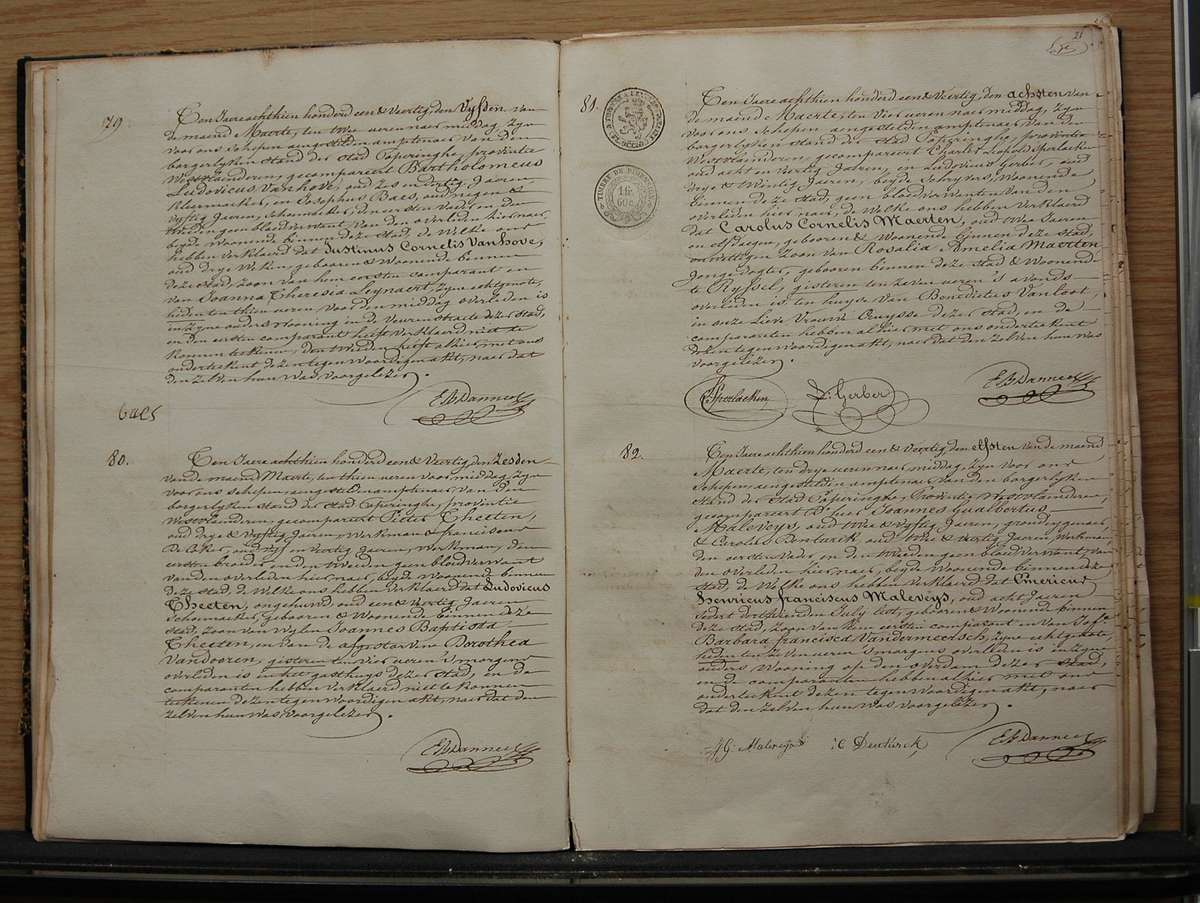 79.
Ten Jaere achthien honderd een & Veertig den Vyfden van
de maend Maerte, ten twee uren naer middag, zyn
voor ons schepen aengestelden amptenaer van den
borgerlyken stand der stad Poperinghe, provintie
Westvlaenderen, gecompareert Bartholomeus
Ludovicus Vanhove, oud zes en dertig Jaeren,
Kleermaeker, en Josephus Baes, oud negen &
Vyftig Jaeren, schoenmaeker, den eersten Vader en den
tweeden geen bloedverwant van den overleden hier naer,
beyde Woonende binnen deze stad, de Welke ons
hebben verklaerd dat Justinus Cornelis Vanhove,
oud drye Weken, gebooren & Woonende binnen
deze stad, zoon van den eersten comparant en
van Joanna Theresia Leynaert, zyne echtgenote,
heden ten thien uren voor den middag overleden is
in zyne ouders Wooning in de Veurenstraete dezer stad,
en den eersten comparant heeft verklaerd niet te
konnen teekenen, den tweeden heeft alhier met ons
onderteekent dezen tegenwoordigen akt, naer dat
den zelven hun Was voorgelezen.
baes
80.
Ten Jaere achthien honderd een & Veertig den zesden
van de maend Maerte, ten thien uren voor middag, zyn
voor ons schepen aengestelden amptenaer van den
borgerlyken stand der stad Poperinghe, provintie
Westvlaenderen, gecompareert Pieter Theeten,
oud drye & Vyftig Jaeren, Werkman & franciscus
De Bker, oud Vyf en Veertig Jaeren, Werkman, den
eersten broeder en den tweeden geen bloedverwant
van den overleden hier naer, beyde Woonende binnen
deze stad, de Welke ons hebben verklaerd dat Ludovicus
Theeten, ongehuwd, oud een & Veertig Jaeren,
Schoenmaeker, gebooren & Woonende binnen deze
stad, zoon van Wylen Joannes Baptista
Theeten, en van de afgestorvene Dorothea
Vandooren, gisteren ten vier uren s'morgens
overleden is in het gasthuys dezer stad, en de
comparanten hebben verklaerd niet te konnen
teekenen dezen tegenwoordigen akt, naer dat den
zelven hun was voorgelezen.
21
81.
TIMBRE DE DIMENSION
1 fr. 60 c.
Ten Jaere achthien honderd een & Veertig den achsten van
de maend Maerte ten Vier uren naer middag, zyn
voor ons schepen aengestelden amptenaer van den
borgerlyken stand der stad Poperinghe, provintie
Westvlaenderen, gecompareert Charles Leopold Sperlaeken
oud acht en veertig Jaeren, en Ludovicus Gerber, oud
drye & twintig Jaeren, beyde schryvers, Woonende
binnen deze stad, geen bloedverwanten van den
overleden hier naer, de Welke ons hebben Verklaerd
dat Carolus Cornelis Maerten, oud twee Jaeren
en elf daegen, gebooren & Woonende binnen deze stad,
onwettigen zoon van Rosalia, Amelia Maerten
Jonge dogter, gebooren binnen deze stad & Woonende
te Ryssel, gisteren ten zeven uren s'avonds
overleden is ten huyse Van Benedictus Vanloot
in onze Lieve Vrouwe Ouysse dezer stad, en de
comparanten hebben alhier met ons onderteekent
dezen tegenwoordigen akt, naer dat den zelven hun was
voorgelezen.
Sperlaeken L. Gerber
82.
Ten Jaere achthien honderd een & Veertig den elfsten van de maend
Maerte, ten drye uren naer middag, zyn voor ons
schepen aengestelden amptenaer van den borgerlyken
stand der stad Poperinghe, Provintie Westvlaenderen,
gecompareert D'heer Joannes Gualbertus
Maleveys, oud twee & Vyftig Jaeren, grondeygenaer,
& Carolus oud twee & Veertig Jaeren, Werkman,
den eersten Vader en den tweeden geen bloedverwant van
den overleden hier naer, beyde Woonende binnen deze
stad, de Welke ons hebben Verklaerd dat Emericus
henricus franciscus Maleveys, oud acht Jaeren
sedert den thienden July lest, gebooren & Woonende binnen
deze stad, zoon van den eersten comparant en van Joffe
Barbara francisca Vandermeersch, zyne echtgenote,
heden ten zeven uren s'morgens overleden is in zyne
ouders Wooning op den overdam dezer stad,
en de comparanten hebben alhier met ons
onderteekent dezen tegenwoordigen akt, naer
dat den zelven hun was voorgelezen.
J G Maleveys C